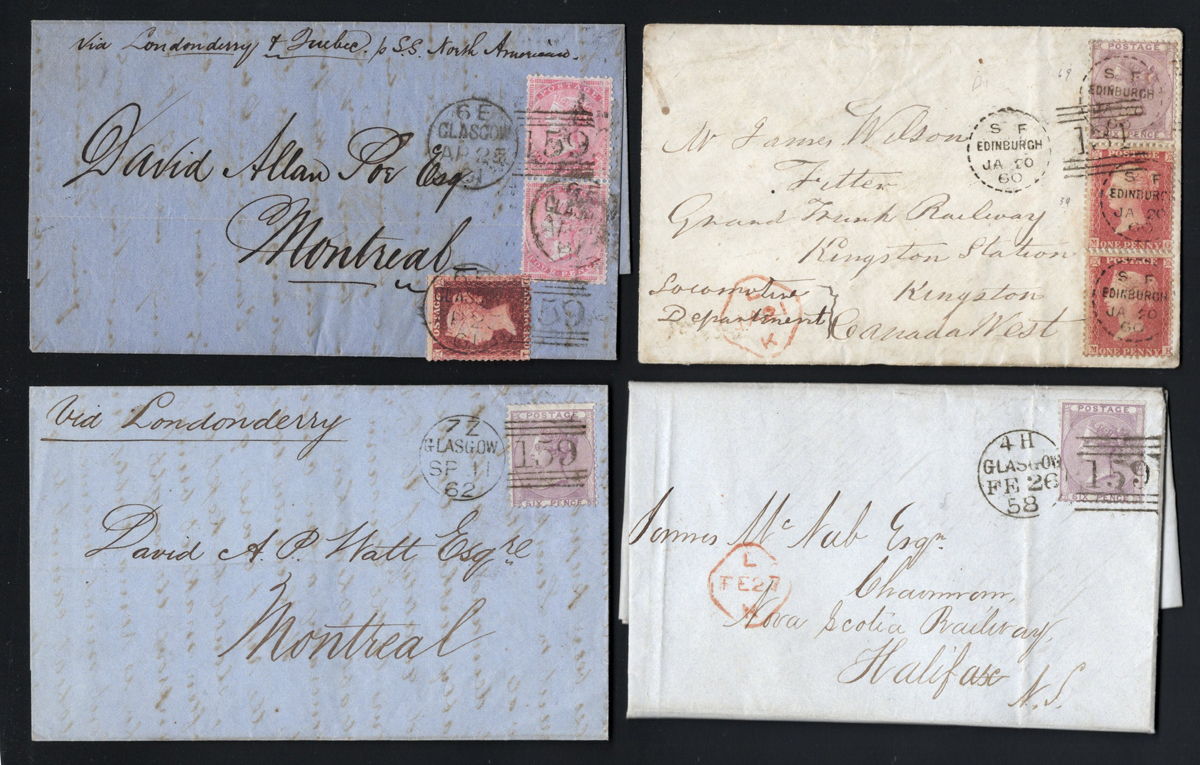 via Londonderry & Quebec. p S.S. North American
6 E
GLASGOW
AP 25
61
POSTAGE
159
David Allan Poe Esqr
Montreal
159
POSTAGE
S F
EDINBURGH
JA 20
60
SIX PENCE
131
POSTAGE
S F
EDINBURGH
JA 20
60
Mr James Wilson
Fitter
Grand Trunk Railway
Kingston Station
Kingston
Canada West
Locomotive
Department
69
39
S F
EDINBURGH
JA 20
60
ONE PENNY
POSTAGE
S F
EDINBURGH
JA 20
60
ONE PENNY
Via Londonderry
7 Z
GLASGOW
SP 11
62
POSTAGE
159
SIX PENCE
David A. P. Watt Esqre
Montreal
4 H
GLASGOW
FE 26
58
POSTAGE
159
SIX PENCE
James McNab Esqr
L
FE 27
Chairman,
Nova Scotia Railway,
Halifax
N.S.